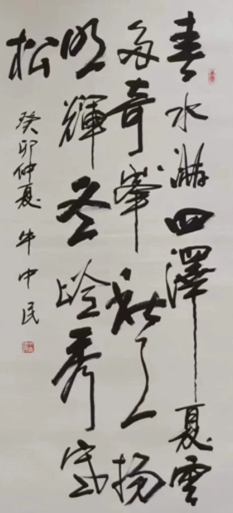 春水滿四澤夏雲
多奇峯秋月揚
明輝冬岭秀寒
松
癸卯仲夏 牛中民